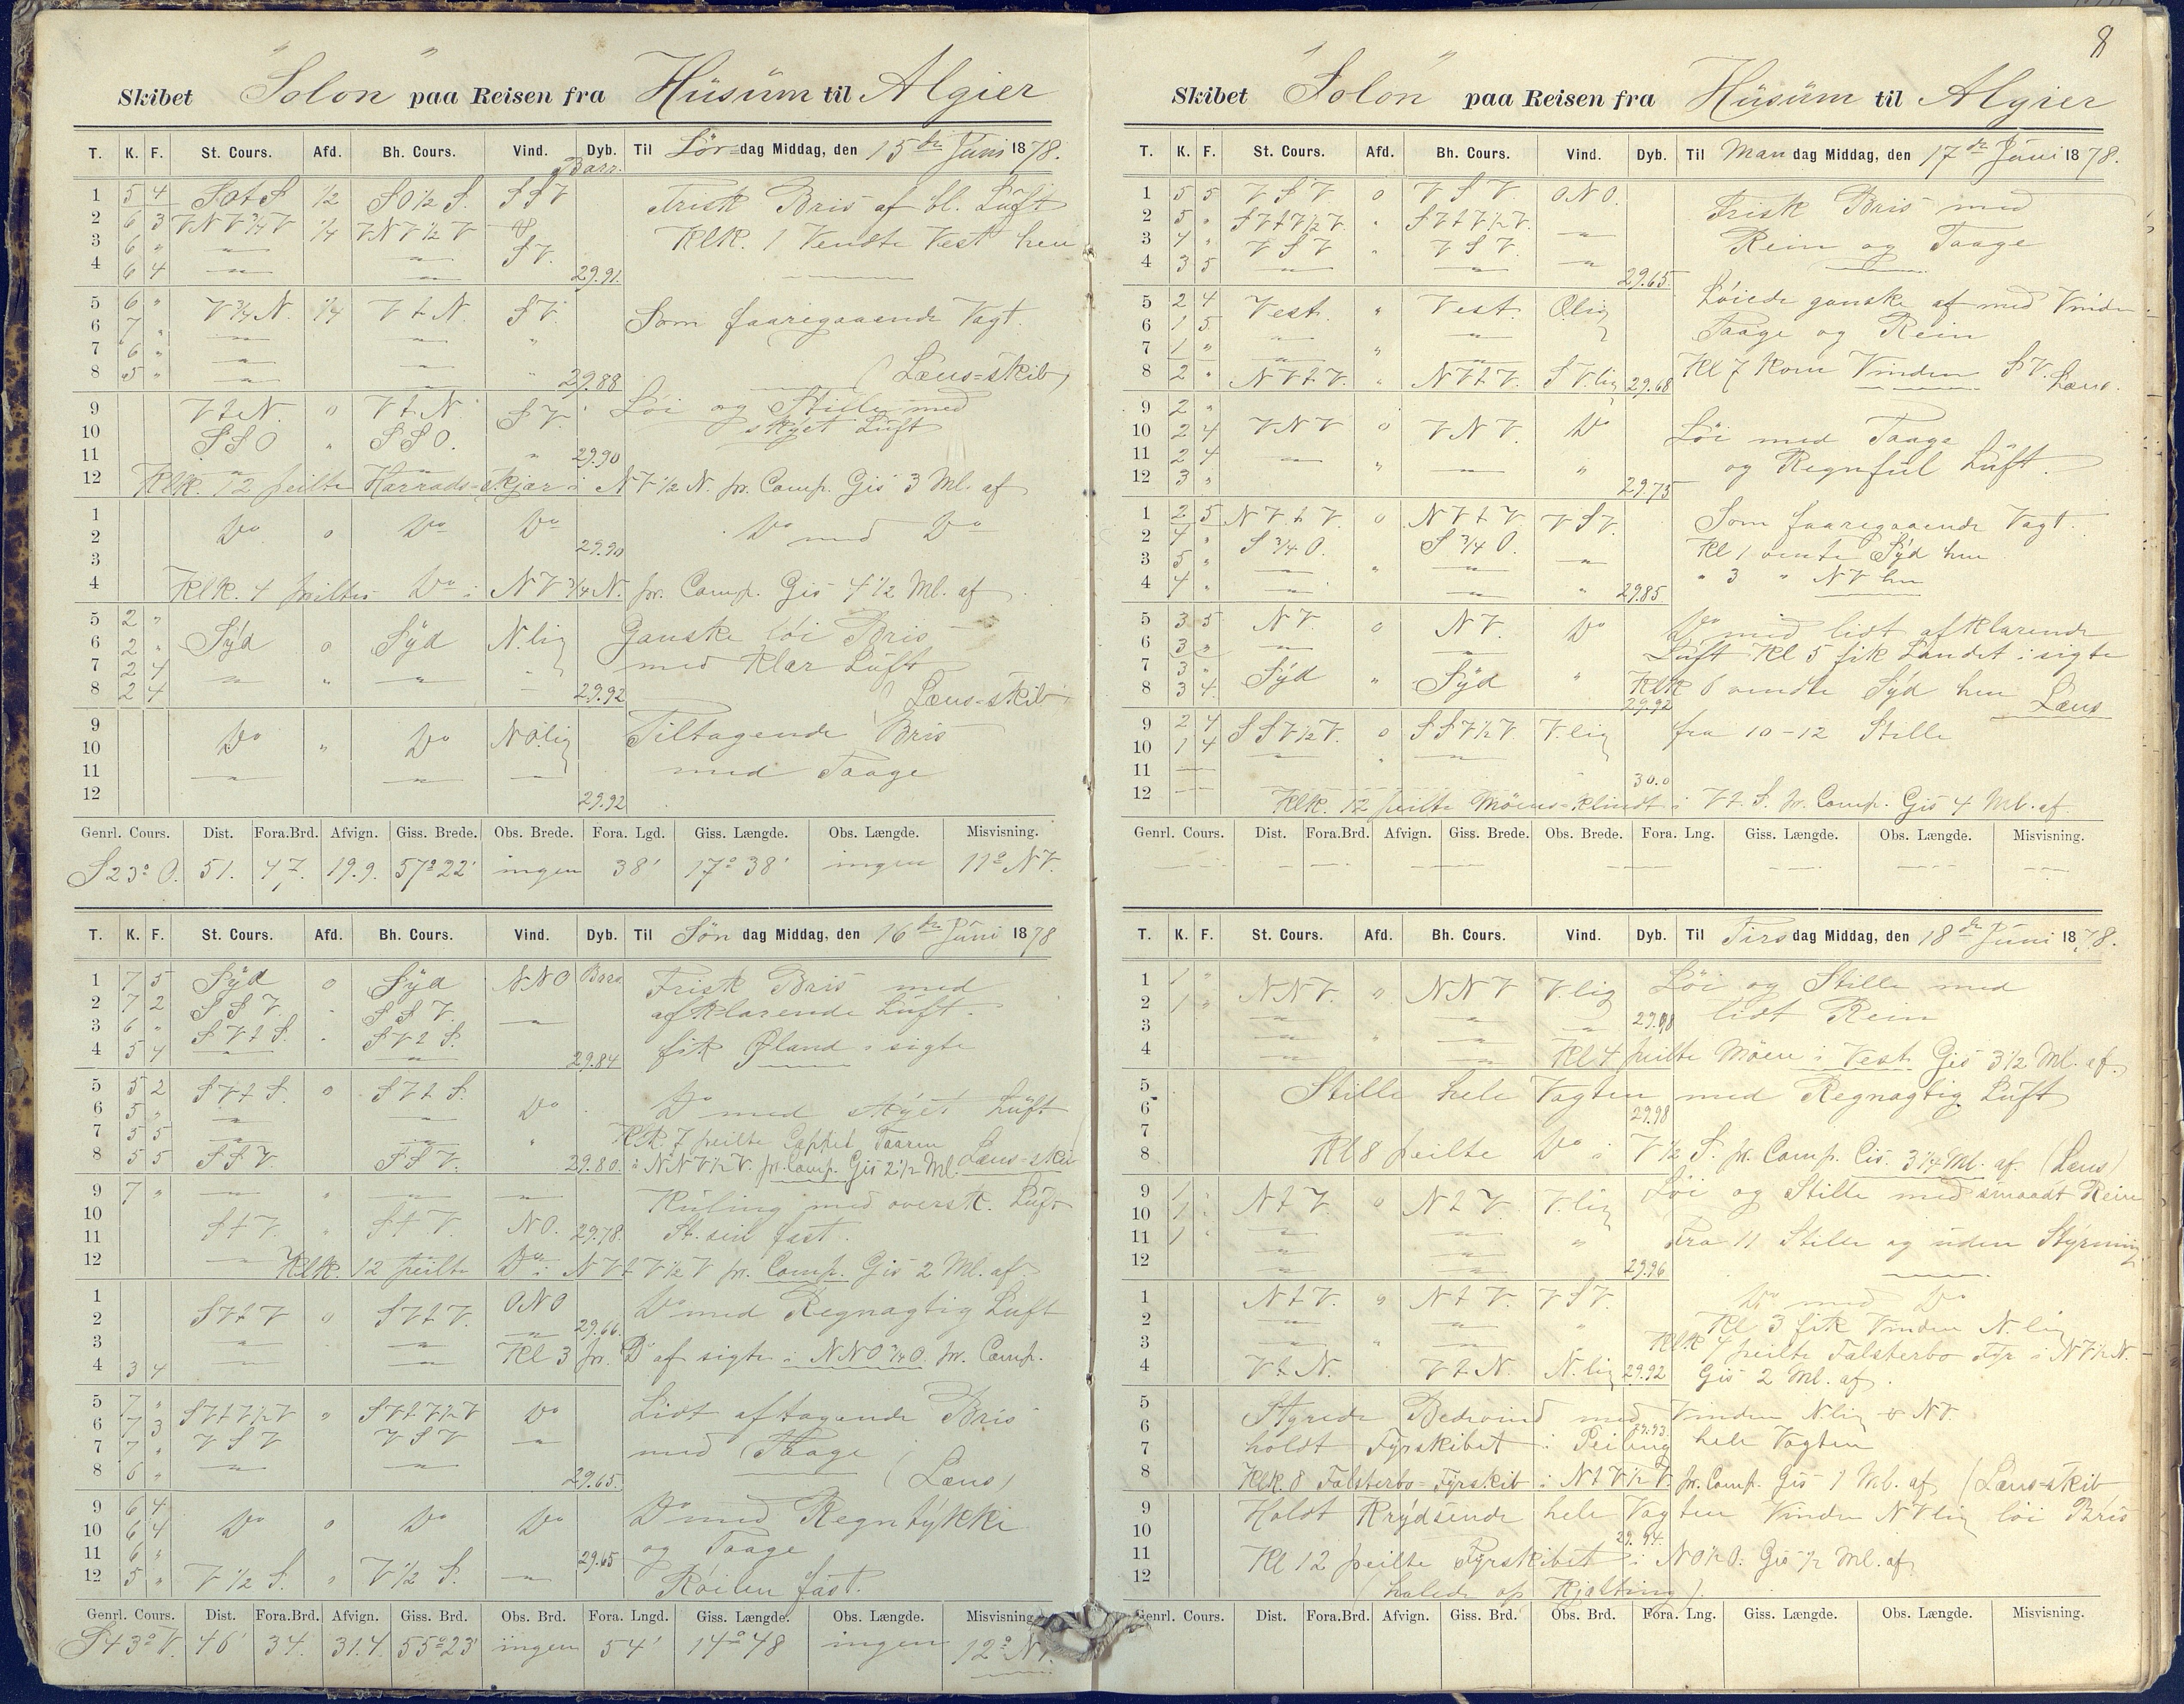 8
Skibet "Solon" paa Reisen fra Hüsüm til Algier
T. K. F. St. Cours. Afd. Bh. Cours. Vind. Dyb. Til Lör-dag Middag, den 15de Juni 1878.
Barr.
1 5 4 SOtS 1/2 SO 1/2 S. SSV Frisk Bris af bl. Lüft
2 6 3 VNV 3/4 V 1/4 VNV 1/2 V Klk. 1 Vendte Vest hen
3 6 " SV.
4 6 4 29.91.
5 6 " V 3/4 N. 1/4 VtN. SV. Som faaregaaende Vagt.
6 7 "
7 6 "
8 5 " 29.88 (Læns=skib)
9 VtN. o VtN. SV. Löi og Stille med
10 SSO " SSO. skyet Lüft
11 29.90
12 Klk. 12 peilte Harrads-skjær i NV 1/2 N. pr. Comp. Gis 3 Ml. af
1 Do o Do Do Do med Do
2 29.90
3
4 Klk. 4 peiltes Do i NV 3/4 N. pr. Comp. Gis 4 1/2 Ml. af
5 2 " Ganske löi Bris
6 2 " Syd o Syd N.lig med Klar Lüft
7 2 4
8 2 4 29.92 (Læns-skib
9 Do " Do NO.lig Tiltagende Bris
10
11 med Taage
12 29.92
Genrl. Cours. Dist. Fora.Brd. Afvign. Giss. Brede. Obs. Brede. Fora. Lgd. Giss. Længde. Obs. Længde. Misvisning.
S 23° O. 51. 47. 19.9. 57° 22' ingen 38' 17° 38' ingen 11° NV.
T. K. F. St. Cours. Afd. Bh. Cours. Vind. Dyb. Til Søn dag Middag, den 16de Juni 1878
1 7 5 Syd o Syd NNO Baro. Frisk Bris med
2 7 2 SSV " SSV. afklarende Lüft.
3 6 " SVtS. " SVtS.
4 5 4 29.84 fik Øland i sigte
5 5 2 SVtS. o SVtS.
6 5 " Do Do med skyet Lüft
7 5 5 Klk. 7 peilte Cappel Taaren
8 5 5 SSV. SSV. 29.80. i NNV 1/2 V. pr. Comp. Gis 2 1/2 Ml. Læns-skib
9 7 " Küling med oversk. Lüft
10
11 StV. " StV. NO. 29.78. St. seil fast.
12 Klk. 12 peilte Do i NVtV 1/2 V pr. Comp. Gis 2 Ml. af.
1 ONO Do med Regnagtig Lüft
2 SVtV o SVtV. 29.66.
3 Kl 3 pr. D af sigte i NNO 3/4 O. pr. Comp.
4 3 4
5 7 " SVtV 1/2 V " SVtV 1/2 V Do Lidt aftagende Bris
6 7 3
7 7 " VSV VSV med Taage
8 6 " 29.65. (Læns)
9 6 4 Do med Regntykke
10 6 4 Do o Do Do og Taage
11 6 " 29.65
12 5 " V 1/2 S. " V 1/2 S. Röilen fast.
Genrl. Cours. Dist. Fora.Brd. Afvign. Giss. Brd. Obs. Brd. Fora. Lngd. Giss. Længde. Obs. Længde. Misvisning
S 43° V. 46' 34. 31.4. 55° 23' ingen 54' 14° 48 ingen 12° NV.
Skibet "Solon" paa Reisen fra Hüsüm til Algier
T. K. F. St. Cours. Afd. Bh. Cours. Vind. Dyb. Til Man dag Middag, den 17de Juni 1878.
1 5 5 VSV o VSV. ONO. Frisk Bris med
2 5 " SVtV 1/2 V. " SVtV 1/2 V. Rein og Taage
3 4 " VSV " VSV.
4 3 5 29.65.
5 2 4 Vest. " Vest. Olig Løiede ganske af med Vinden
6 1 5 Taage og Rein
7 1 "
8 2 " NVtV. " NVtV. SV.lig 29.68 Kl 7 kom Vinden SV. Læns.
9 2 "
10 2 4 VNV o VNV. Do Löi med Taage
11 2 4 og Regnful Lüft.
12 3 " 29.75
1 2 5 NVtV. o NVtV VSV. Som faaregaaende Vagt.
2 4 " S 3/4 O. S 3/4 O. Kl 1 vente Syd hen
3 5 " " 3 " NV hen
4 4 " 29.85
5 3 5 NV o NV. Do Do med lidt afklarende
6 3 " Lüft Kl 5 fik Landet i sigte
7 3 " Syd " Syd " Klk 6 vendte Syd hen
8 3 4. 29.92 Læns
9 2 4 SSV 1/2 V. o SSV 1/2 V. V.lig fra 10-12 Stille
10 1 4
11 30.0
12 Klk. 12 peilte Möens-Klindt i VtS. pr. Comp. Gis 4 Ml. af
Genrl. Cours. Dist. Fora.Brd. Afvign. Giss. Brede. Obs. Brede. Fora. Lng. Giss. Længde. Obs. Længde. Misvisning.
T. K. F. St. Cours. Afd. Bh. Cours. Vind. Dyb. Til Tirs dag Middag, den 18de Juni 1878.
1 1 " Löi og Stille med
2 1 " NNV. " NNV V.lig
3 29.98 lidt Rein
4 Kl 4 peilte Möen i Vest. Gis 3 1/2 Ml. af.
5 Stille hele Vagten med Regnagtig Lüft
6 29.98
7
8 Kl 8 peilte Do i V 1/2 S. pr. Comp. Gis. 3 1/4 Ml. af. (Læns)
9 1 " NtV. o NtV. V.lig Löi og Stille med smaadt Rein
10 1 "
11 1 " Fra 11 Stille og uden Styrning
12 29.96
1 NtV. " NtV. VSV. Do med Do
2 Kl 3 fik Vinden N.lig
3 Klk 4 peilte Falsterbo Fyr i NV 1/2 N.
4 VtN. VtN N.lig 29.92 Gis 2 Ml. af.
5 Styrede Bedevind med Vinden N.lig & NV.
6 29.93.
7 holdt Fyrskibet i Peiling hele Vagten
8 Klk. 8 Falsterbo-Fyrskib i NtV 1/2 V. pr. Comp. Gis 1 Ml. af (Læns-skib
9 Holdt Krydsende hele Vagten Vinden NVlig löi Bris
10 29.94.
11 Kl 12 peilte Fyrskibet i NO 1/2 O. Gis 1/2 Ml. af
12 (halede op Kjætting).
Genrl. Cours. Dist. Fora.Brd. Afvign. Giss. Brd. Obs. Brd. Fora. Lng. Giss. Længde. Obs. Længde. Misvisning.